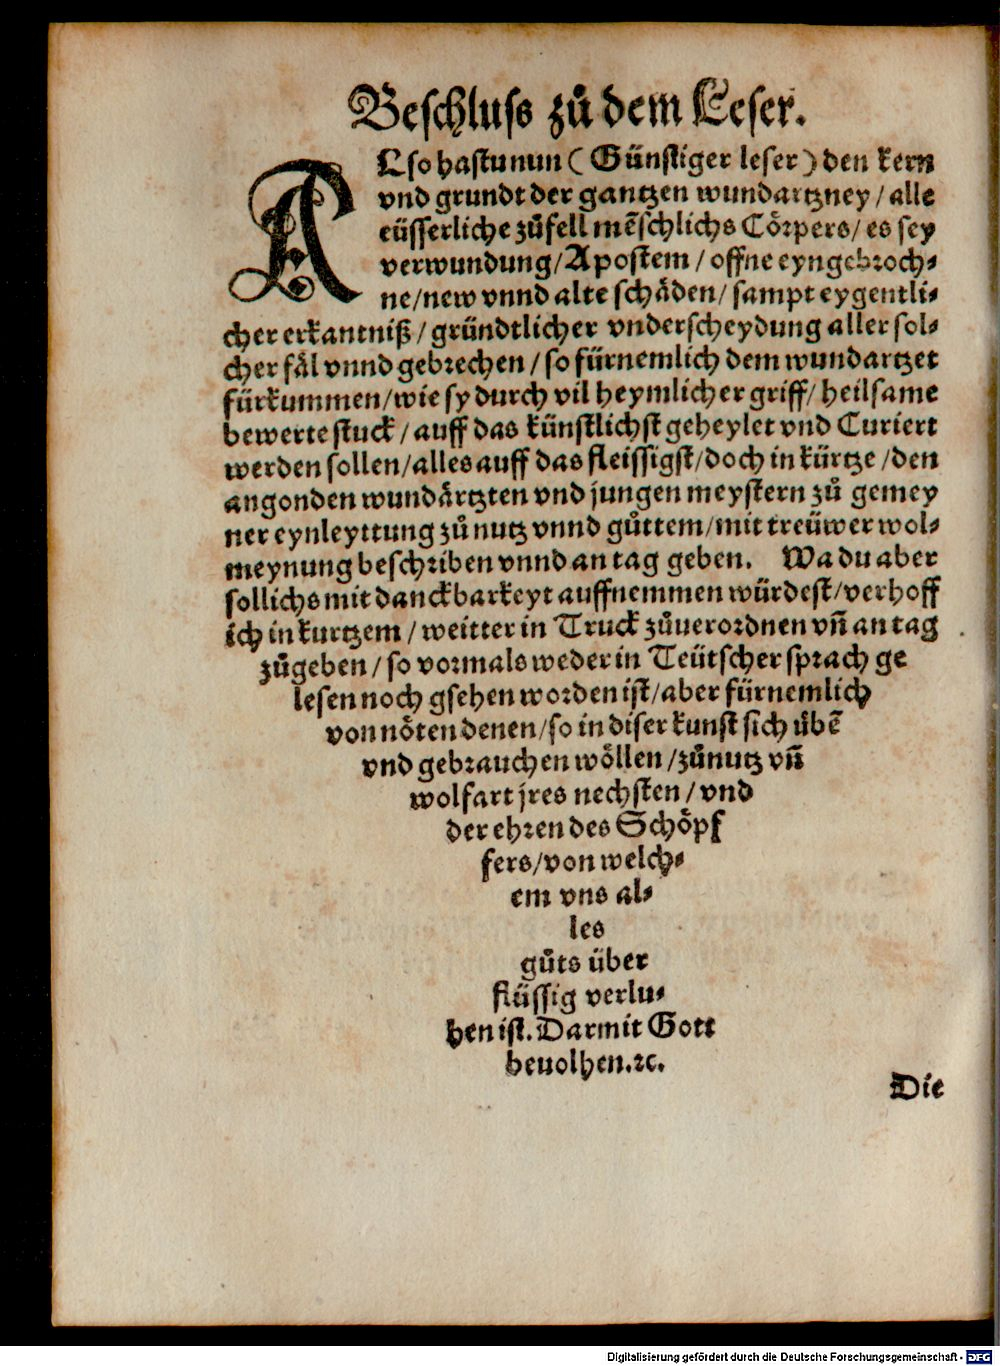 Beschluss zů dem Leser.
ALso hastu nun (Günstiger leser) den kern
vnd grundt der gantzen wundartzney/ alle
eüsserliche zůfell mẽschlichs Cörpers/ es sey
verwundung/ Apostem/ offne eyngebroch⸗
ne/ new vnnd alte schäden/ sampt eygentli⸗
cher erkantniß/ gründtlicher vnderscheydung aller sol⸗
cher fäl vnnd gebrechen/ so fürnemlich dem wundartzet
fürkummen/ wie sy durch vil heymlicher griff/ heilsame
bewerte stuck/ auff das künstlichst geheylet vnd Curiert
werden sollen/ alles auff das fleissigst/ doch in kürtze/ den
angonden wundärtzten vnd jungen meystern zů gemey
ner eynleyttung zů nutz vnnd gůttem/ mit treüwer wol⸗
meynung beschriben vnnd an tag geben. Wa du aber
sollichs mit danckbarkeyt auffnemmen würdest/ verhoff
ich in kurtzem/ weitter in Truck zůuerordnen vñ an tag
zůgeben/ so vormals weder in Teütscher sprach ge
lesen noch gsehen worden ist/ aber fürnemlich
von nöten denen/ so in diser kunst sich übẽ
vnd gebrauchen wöllen/ zůnutz vñ
wolfart jres nechsten/ vnd
der ehren des Schöpf
fers/ von welch⸗
em vns al⸗
les
gůts über
flüssig verlu⸗
hen ist. Darmit Gott
beuolhen.ꝛc.
Die
Digitalisierung gefördert durch die Deutsche Forschungsgemeinschaft - DFG